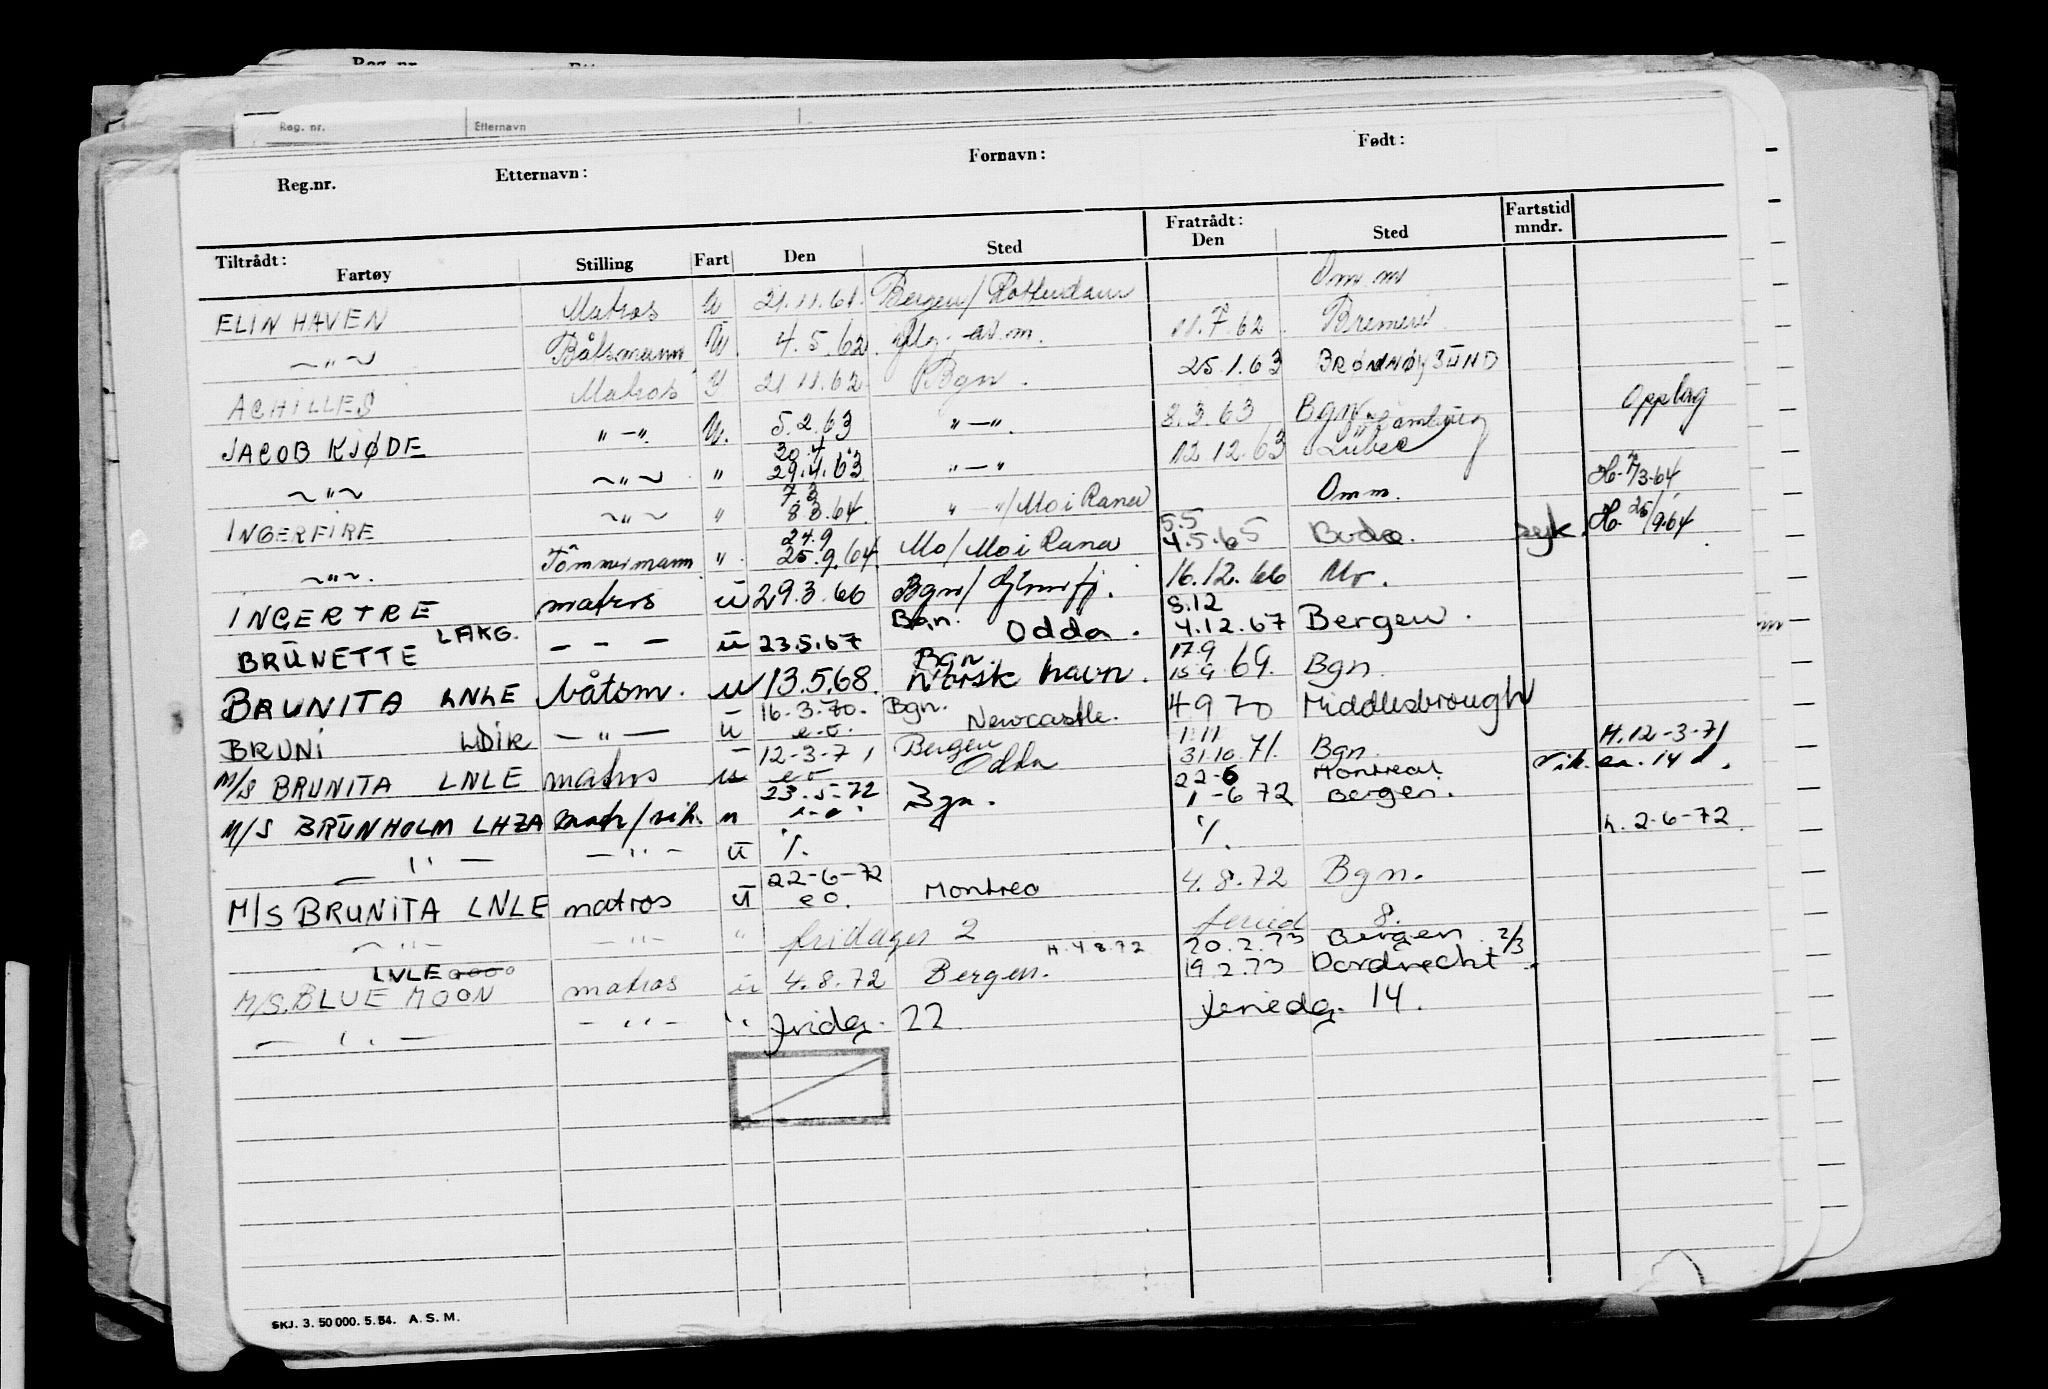 Reg. nr.
Reg. nr. Etternavn
Reg.nr. Etternavn: Fornavn: Født:
Tiltrådt: Fratrådt: Fartstid mndr.
Fartøy Stilling Fart Den Sted Den Sted
ELIN HAVEN Matros U 21.11.61. Bergen/Rotterdam Omm
—"— Båtsmann U. 4.5.62. a.m. 11.7.62. Bremen
ACHILLES Matros U 21.11.62 Bgn. 25.1.63 BRØNNØYSUND
JACOB KJØDE "—". U. 5.2.63 "—". 8.3.63 Bgn Hamburg Opplag
30.4
—"— —"— " 29.4.63 "—" 12.12.63 Lübec
7.3
INGERFIRE —"— " 8.3.64. "—"/Mo i Rana Omm. H. 7/3-64
24.9 5.5
—"—. Tömmermann " 25.9.64. Mo/Mo i Rana 4.5.65 Bodø. syk. H. 25/9.64
INGERTRE matros u 29.3.66 Bgn/Glomfj. 16.12.66 Mo.
Bgn. 5.12
BRUNETTE LAKG. — — — u 23.5.67 Odda. 4.12.67 Bergen.
Bgn 17.9
BRUNITA LNLE båtsm. u 13.5.68. Norsk havn. 15.9.69. Bgn.
16.3.70. Bgn.
BRUNI LDIR —"— u e.o. Newcastle. 4 9 70 Middlesbrough
12-3-71 Bergen 1.11
M/S BRUNITA LNLE matros u e o Odda 31.10.71. Bgn. H. 12-3-71
23.5-72 22-6 Montreal Vik. ca. 14 d.
M/S BRUNHOLM LHZA matr/vik. u e-o. Bgn. 1-6 72 Bergen.
—"— —"— u ./. ./. h. 2-6-72.
22-6-72
M/S BRUNITA LNLE matros u e o. Montrea 4.8.72 Bgn.
—"— —"— " fridager 2 feried 8.
H. 4.8.72 20.2.73 Bergen. 2/3
LNLE
M/S. BLUE MOON matros u 4.8.72 Bergen. 19.2.73 Dordrecht.
—"— —"— " fridg. 22 feriedg. 14.
SKJ. 3. 50 000. 5. 54. A. S. M.